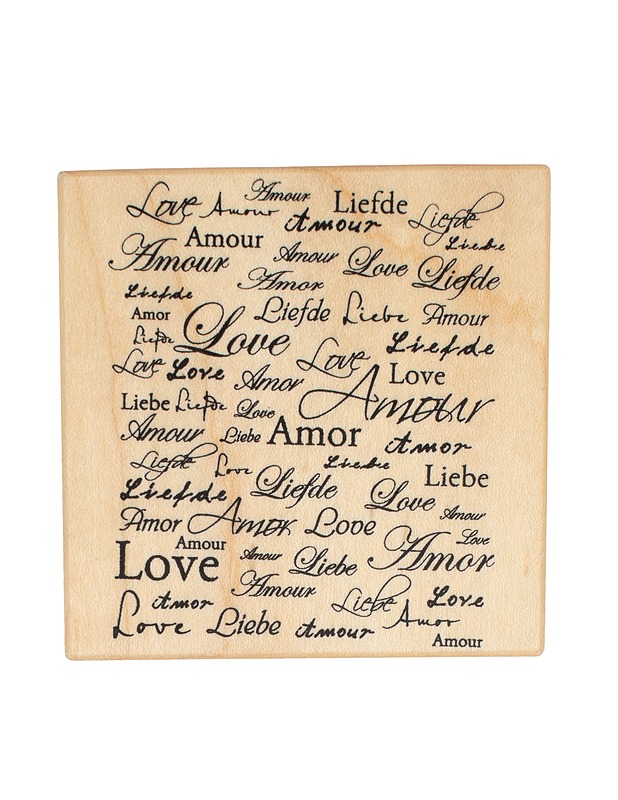 Love Amour Amour Liefde Liefde
Amour Amour Liebe
Amour Amour Love Liefde
Liefde Amor
Amor Liefde Liebe Amour
Liefde Love Love Liefde
Love Love Amor Love
Liebe Liefde Love Amour
Amour Liebe Amor Amor
Liefde Love Liebe Liebe
Liefde Liefde Love Amour
Amor Amor Love Love
Amour Amour Liebe Amor
Love Amour
Amor Liebe Love
Love Liebe Amour Amor
Amour